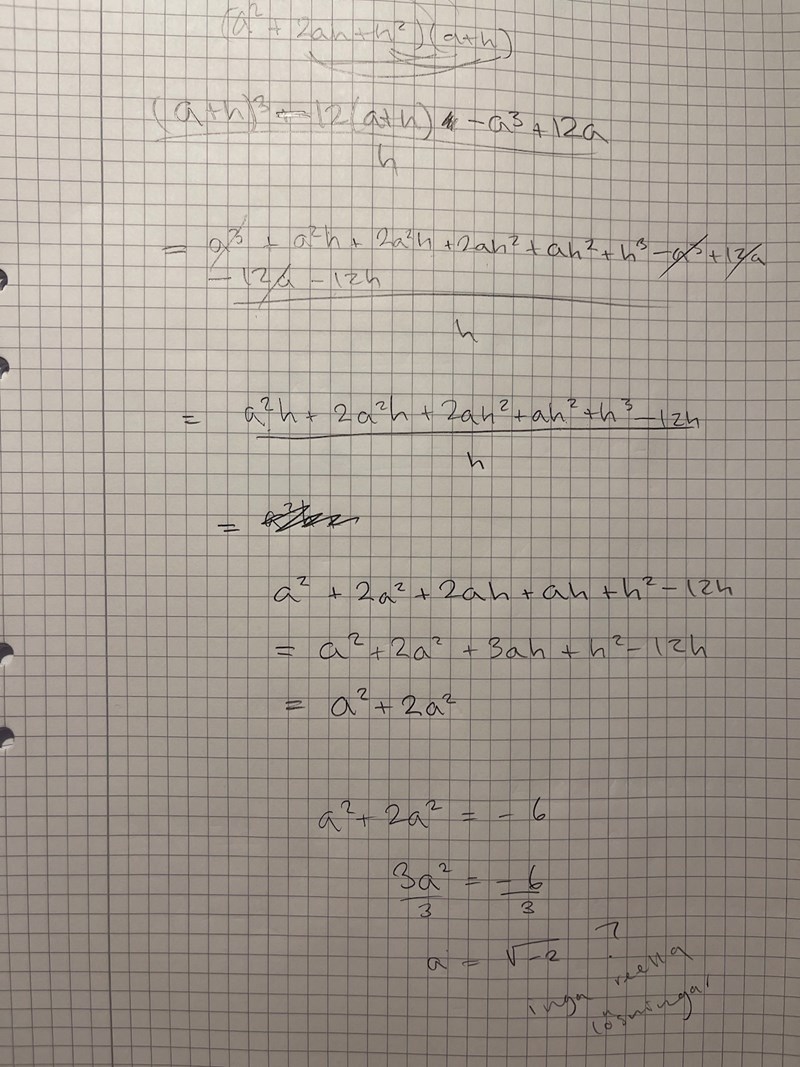 (a² + 2ah + h²)(a+h)
(a+h)³ - 12(a+h) - a³ + 12a
h
= a³ + a²h + 2a²h + 2ah² + ah² + h³ - a³ + 12a
- 12a - 12h
h
= a²h + 2a²h + 2ah² + ah² + h³ - 12h
h
=
a² + 2a² + 2ah + ah + h² - 12h
= a² + 2a² + 3ah + h² - 12h
= a² + 2a²
a² + 2a² = - 6
3a² = - 6
3 3
a = √-2 ?
inga reella
lösningar